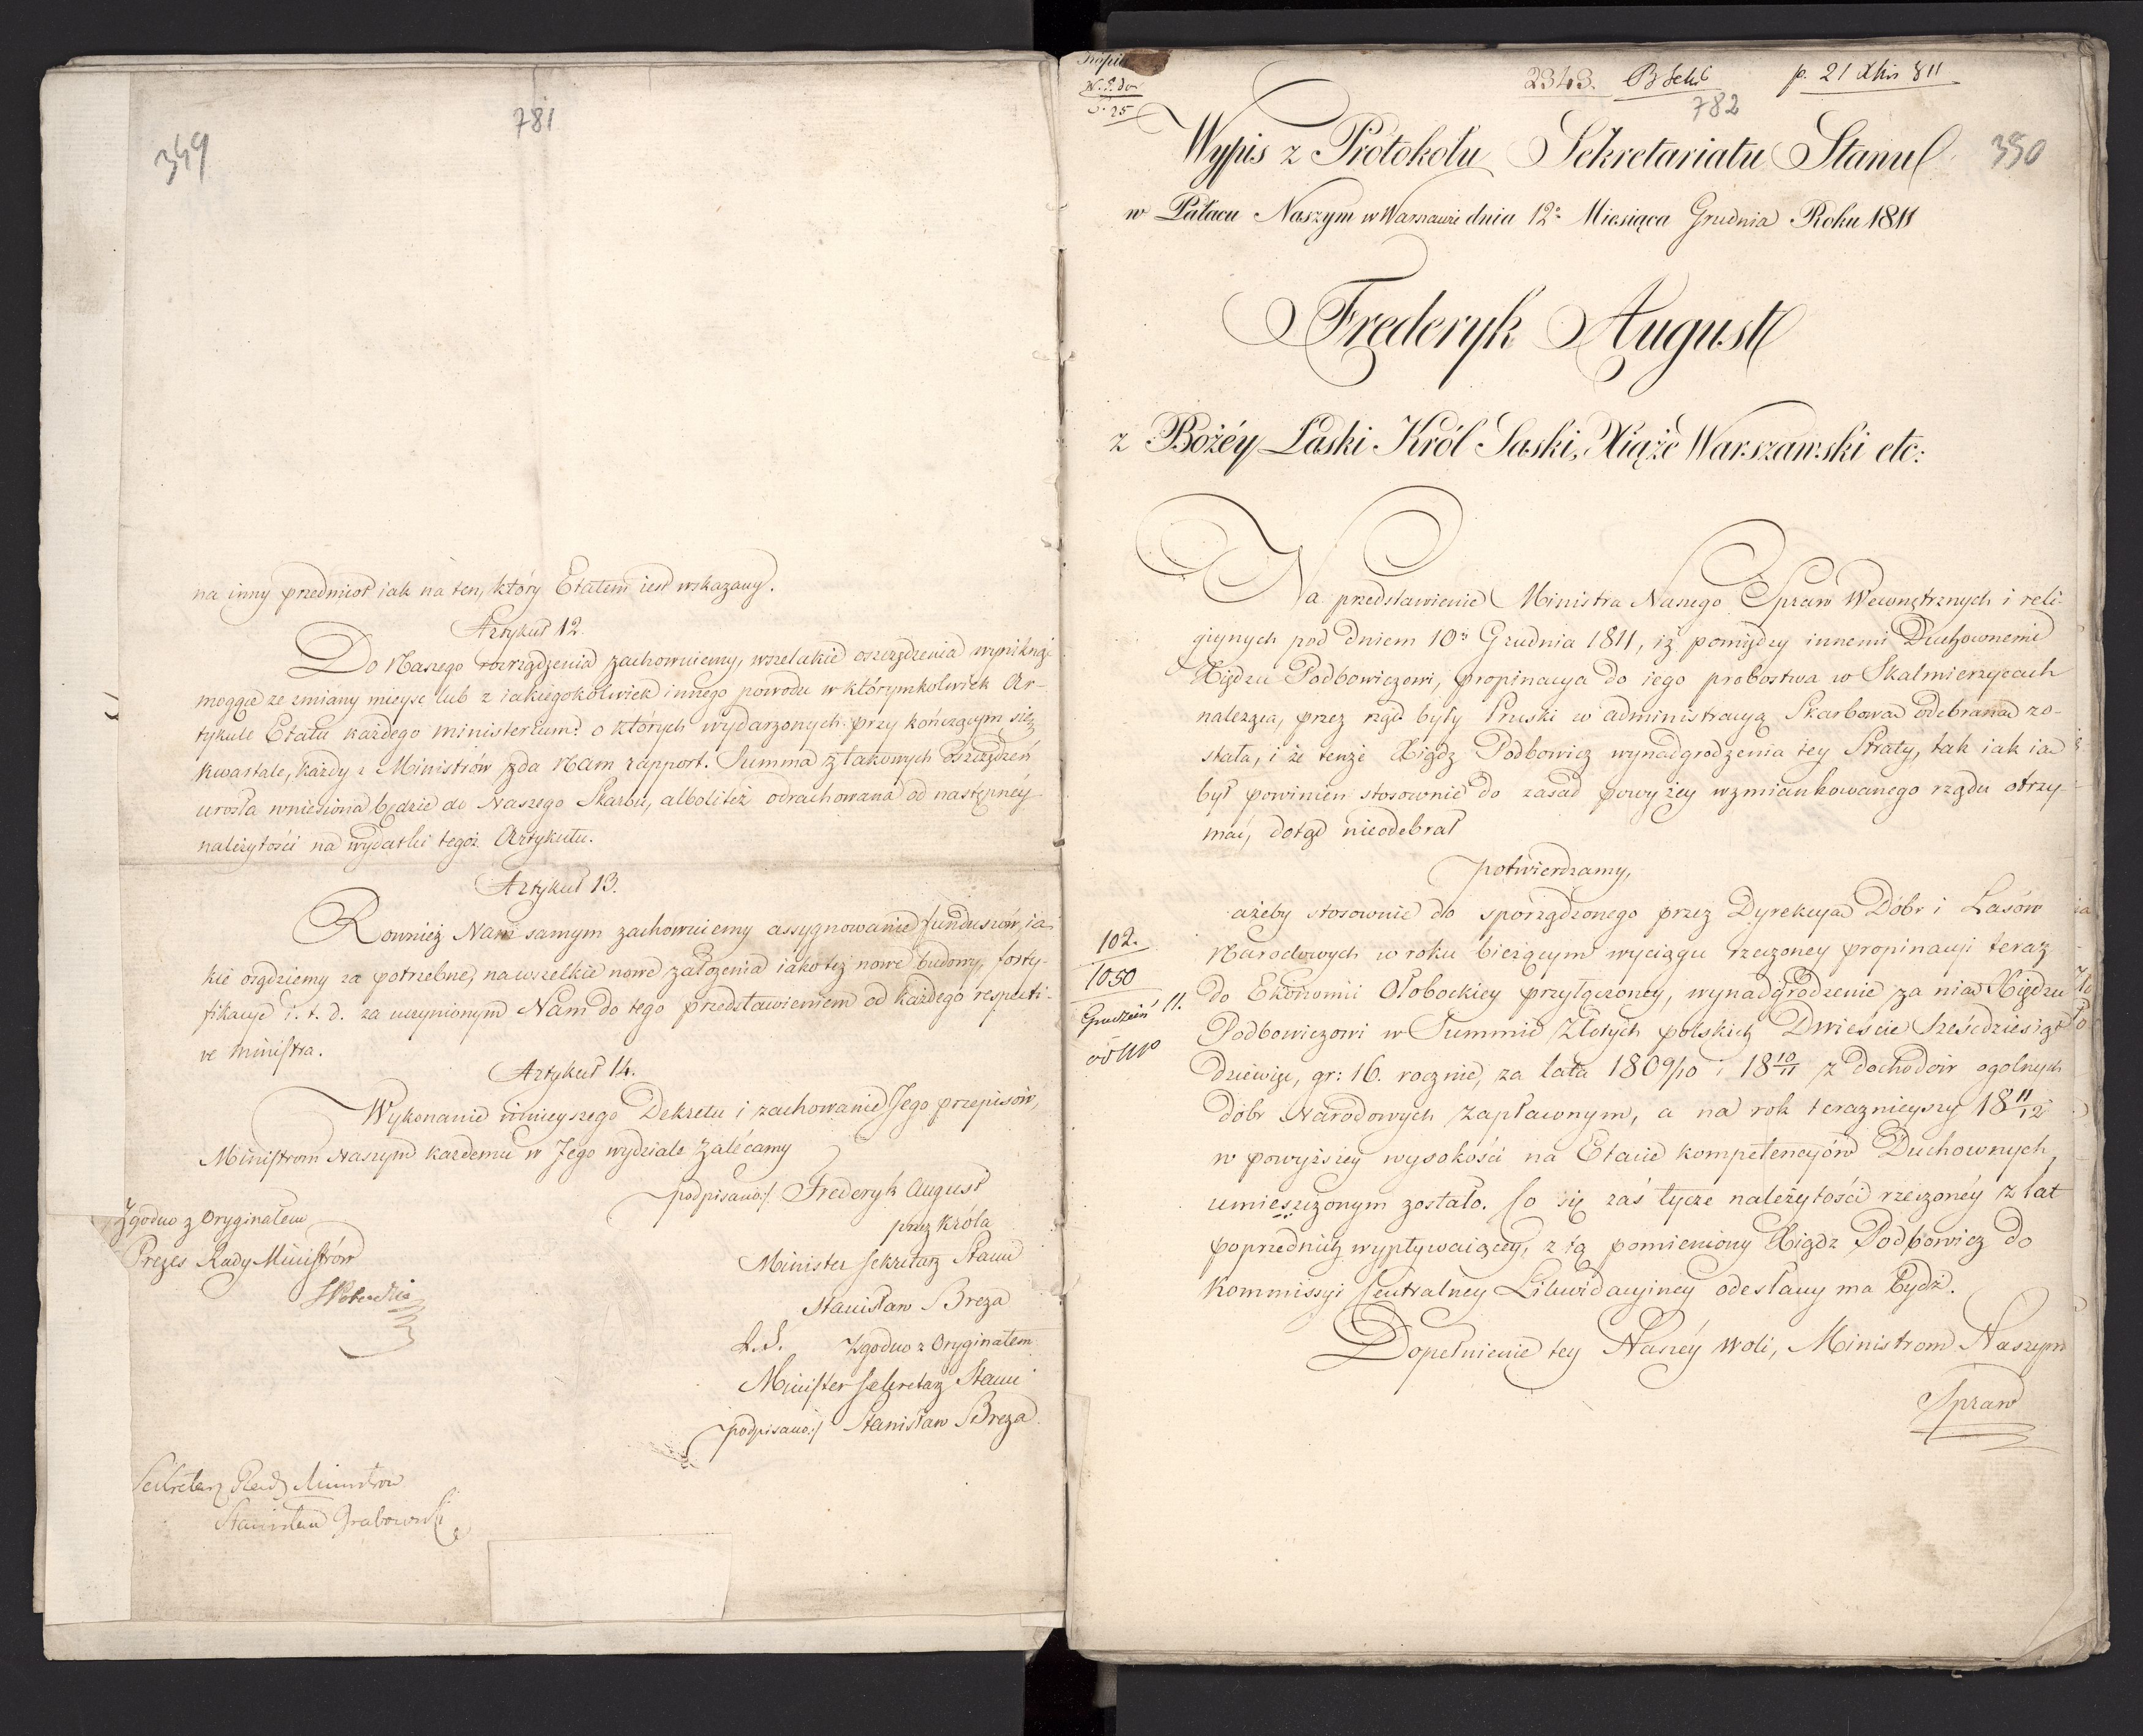 781
349
na inny przedmiot iak na ten, który Etatem iest wskazany.
Artykuł 12.
Do Naszego rozrządzenia zachowuiemy, wszelakie oszczędzenia wyniknąć
mogące ze zmiany mieysc lub z iakiegokolwiek innego powodu w którymkolwiek Ar-
tykule Etatu każdego ministerium: o których wydarzonych przy kończącym się
kwartale, każdy z Ministrów zda Nam rapport. Summa z takowych oszczędzeń
urosła wniesiona będzie do Naszego Skarbu, albolitéż odrachowana od następnéy
należytości na wydatki tegoż Artykułu.
Artykuł 13.
Rownież Nam samym zachowuiemy assygnowanie funduszów, ia-
kie osądziemy za potrzebne, na wszelkie nowe założenia iakoteż nowe budowy, forty-
fikacye i. t. d. za uczynionym Nam do tego przedstawieniem od każdego respecti-
ve ministra.
Artykuł 14.
Wykonanie ninieyszego Dekretu i zachowanie Jego przepisów,
Ministrom Naszym każdemu w Jego wydziale zalécamy
podpisano:/ Frederyk August
przez Króla
Minister Sekretarz Stanu
Stanisław Breza
L.S. Zgodno z Oryginałem
Minister Sekretarz Stanu
podpisano:/ Stanisław Breza
Zgodno z Oryginałem
Prezes Rady Ministrów
Sekretarz Rady Ministrow
Stanisław Grabowski
2343. p. 21 Xbris 811
782
350
Wypis z Protokołu Sekretariatu Stanu
w Pałacu Naszym w Warszawie dnia 12o Miesiąca Grudnia Roku 1811
Frederyk August
z Bożéy Łaski Król Saski, Xiąże Warszawski etc:
Na przedstawienie Ministra Naszego Spraw Wewnętrznych i reli-
giynych pod dniem 10o Grudnia 1811, iż pomiędzy innemi Duchownemi
Xiędzu Podbowiczowi, propinacya do iego probostwa w Skalmierzycach
należąca, przez rząd były Pruski w administracyą Skarbową odebraną zo-
stała, i że tenże Xiądz Podbowicz wynadgrodzenia tey Straty, tak iak ie
był powinien stosownie do zasad powyżey wzmiankowanego rządu otrzy-
mać, dotąd nieodebrał
potwierdzamy,
ażeby stosownie do sporządzonego przez Dyrekcyą Dóbr i Lasów
Narodowych w roku bieżącym wyciągu rzeczoney propinacyi teraz
do Ekonomii Ołobockiey przyłączoney, wynadgrodzenie za nią Xiędzu
Podbowiczowi w Summie Złotych polskich Dwieście Sześćdziesiąt
dziewięć, gr: 16. rocznie, za lata 1809/10 i 18 10/11 z dochodów ogolnych
dóbr Narodowych zapłaconym, a na rok teraznieyszy 18 11/12
w powyższey wysokości na Etacie kompetencyów Duchownych,
umieszczonym zostało. Co się zaś tycze należytości rzeczonéy z lat
poprzednich wypływaiącey, z tą pomieniony Xiądz Podbowicz do
Kommissyi Centralney Likwidacyiney odesłany ma bydź.
Dopełnienie tey Naszéy woli, Ministrom Naszym
Spraw
102.
1050
Grudzień 11.